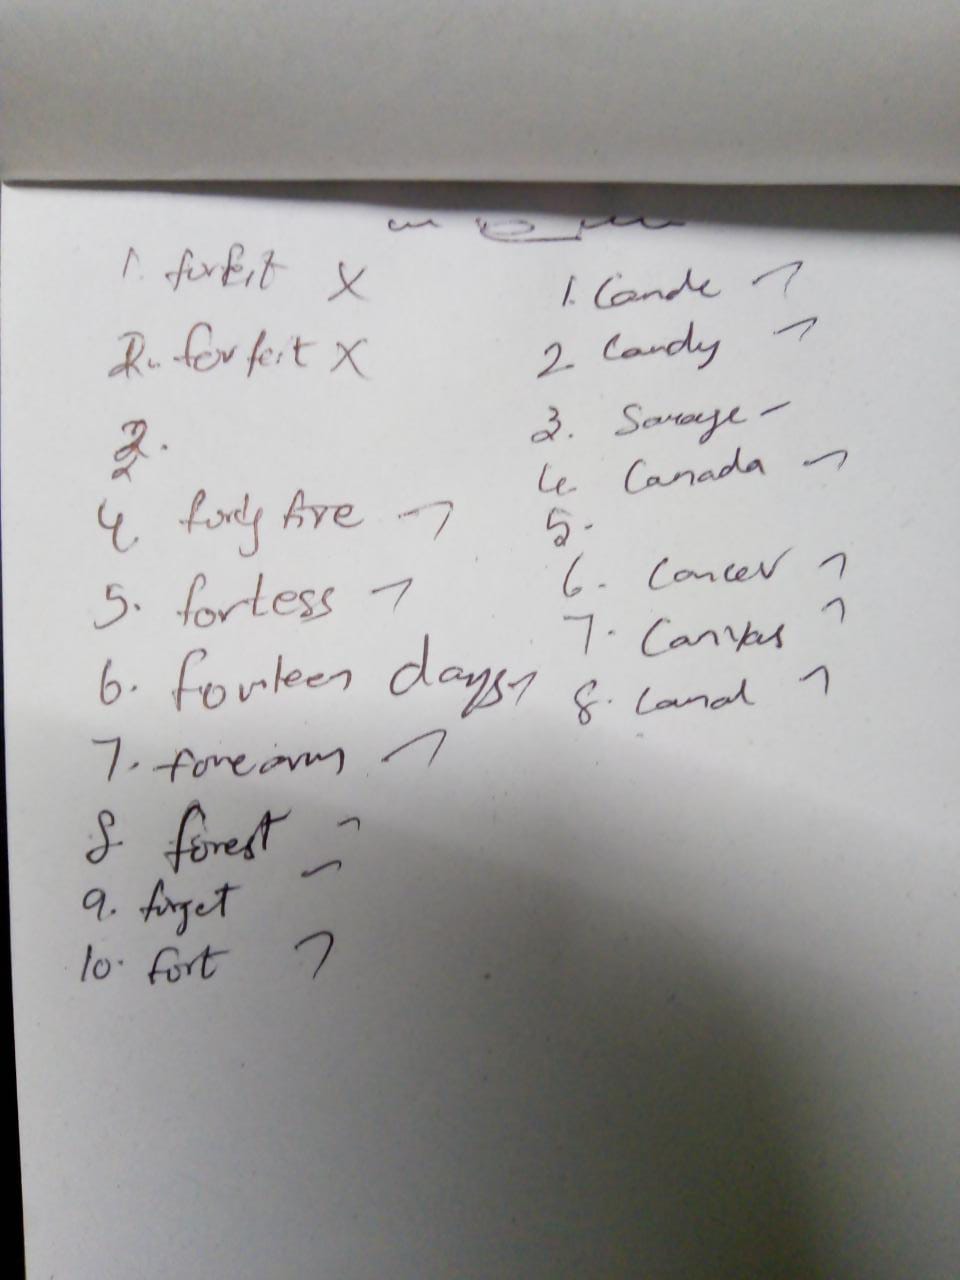 1. forfeit X
2. forfeit X
3.
4. forty five
5. fortess
6. fourteen days
7. forearm
8. forest
9. forget
10. fort
1. Cande
2. Candy
3.
4. Canada
5.
6. Cancer
7. Canvas
8. Canal